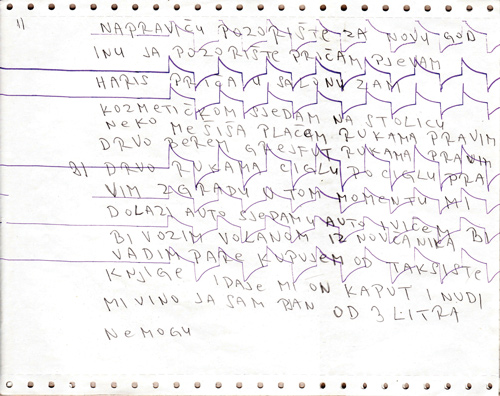 11
NAPRAVIĆU POZORIŠTE ZA NOVU GOD
INU JA POZORIŠTE PRIČAM PJEVAM
HARIS U SALONU ZAM
KOZMETIČKOM SJEDAM NA STOLICU
NEKO ME ŠIŠA PLAČEM RUKAMA PRAVIM
DRVO BEREM RUKAMA PRAVIM
DRVO RUKAMA CIGLU PO CIGLU PRA
VIM ZGRADU U TOM MOMENTU MI
DOLAZI AUTO SJEDAM U AUTO BI
BI VOZIM VOLANOM IZ NOVČANIKA
VADIM PARE KUPUJEM OD TAKSISTE
KNJIGE I DAJE MI ON KAPUT I NUDI
MI VINO JA SAM OD 3 LITRA
NEMOGU